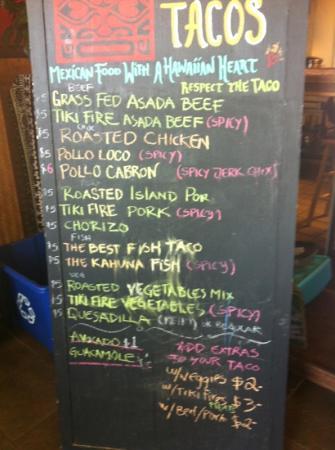 TACOS
MEXICAN FOOD WITH A HAWAIIAN HEART
BEEF
RESPECT THE TACO
$5 GRASS FED ASADA BEEF
$5 TIKI FIRE ASADA BEEF (SPICY)
$5 ROASTED CHICKEN
$5 POLLO LOCO (SPICY)
$6 POLLO CABRON (SPICY JERK CHIX)
$5 ROASTED ISLAND POR
$5 TIKI FIRE PORK (SPICY)
$5 CHORIZO
FISH
$5 THE BEST FISH TACO
$5 THE KAHUNA FISH (SPICY)
VEG
$5 ROASTED VEGETABLES MIX
$5 TIKI FIRE VEGETABLES (SPICY)
$5 QUESADILLA OR REGULAR
AVOCADO $1
GUACAMOLE
ADD EXTRAS
TO YOUR
TACO
W/VEGGIES $2-
W/TIKI FIRE $3-
W/BEEF/PORK $2-